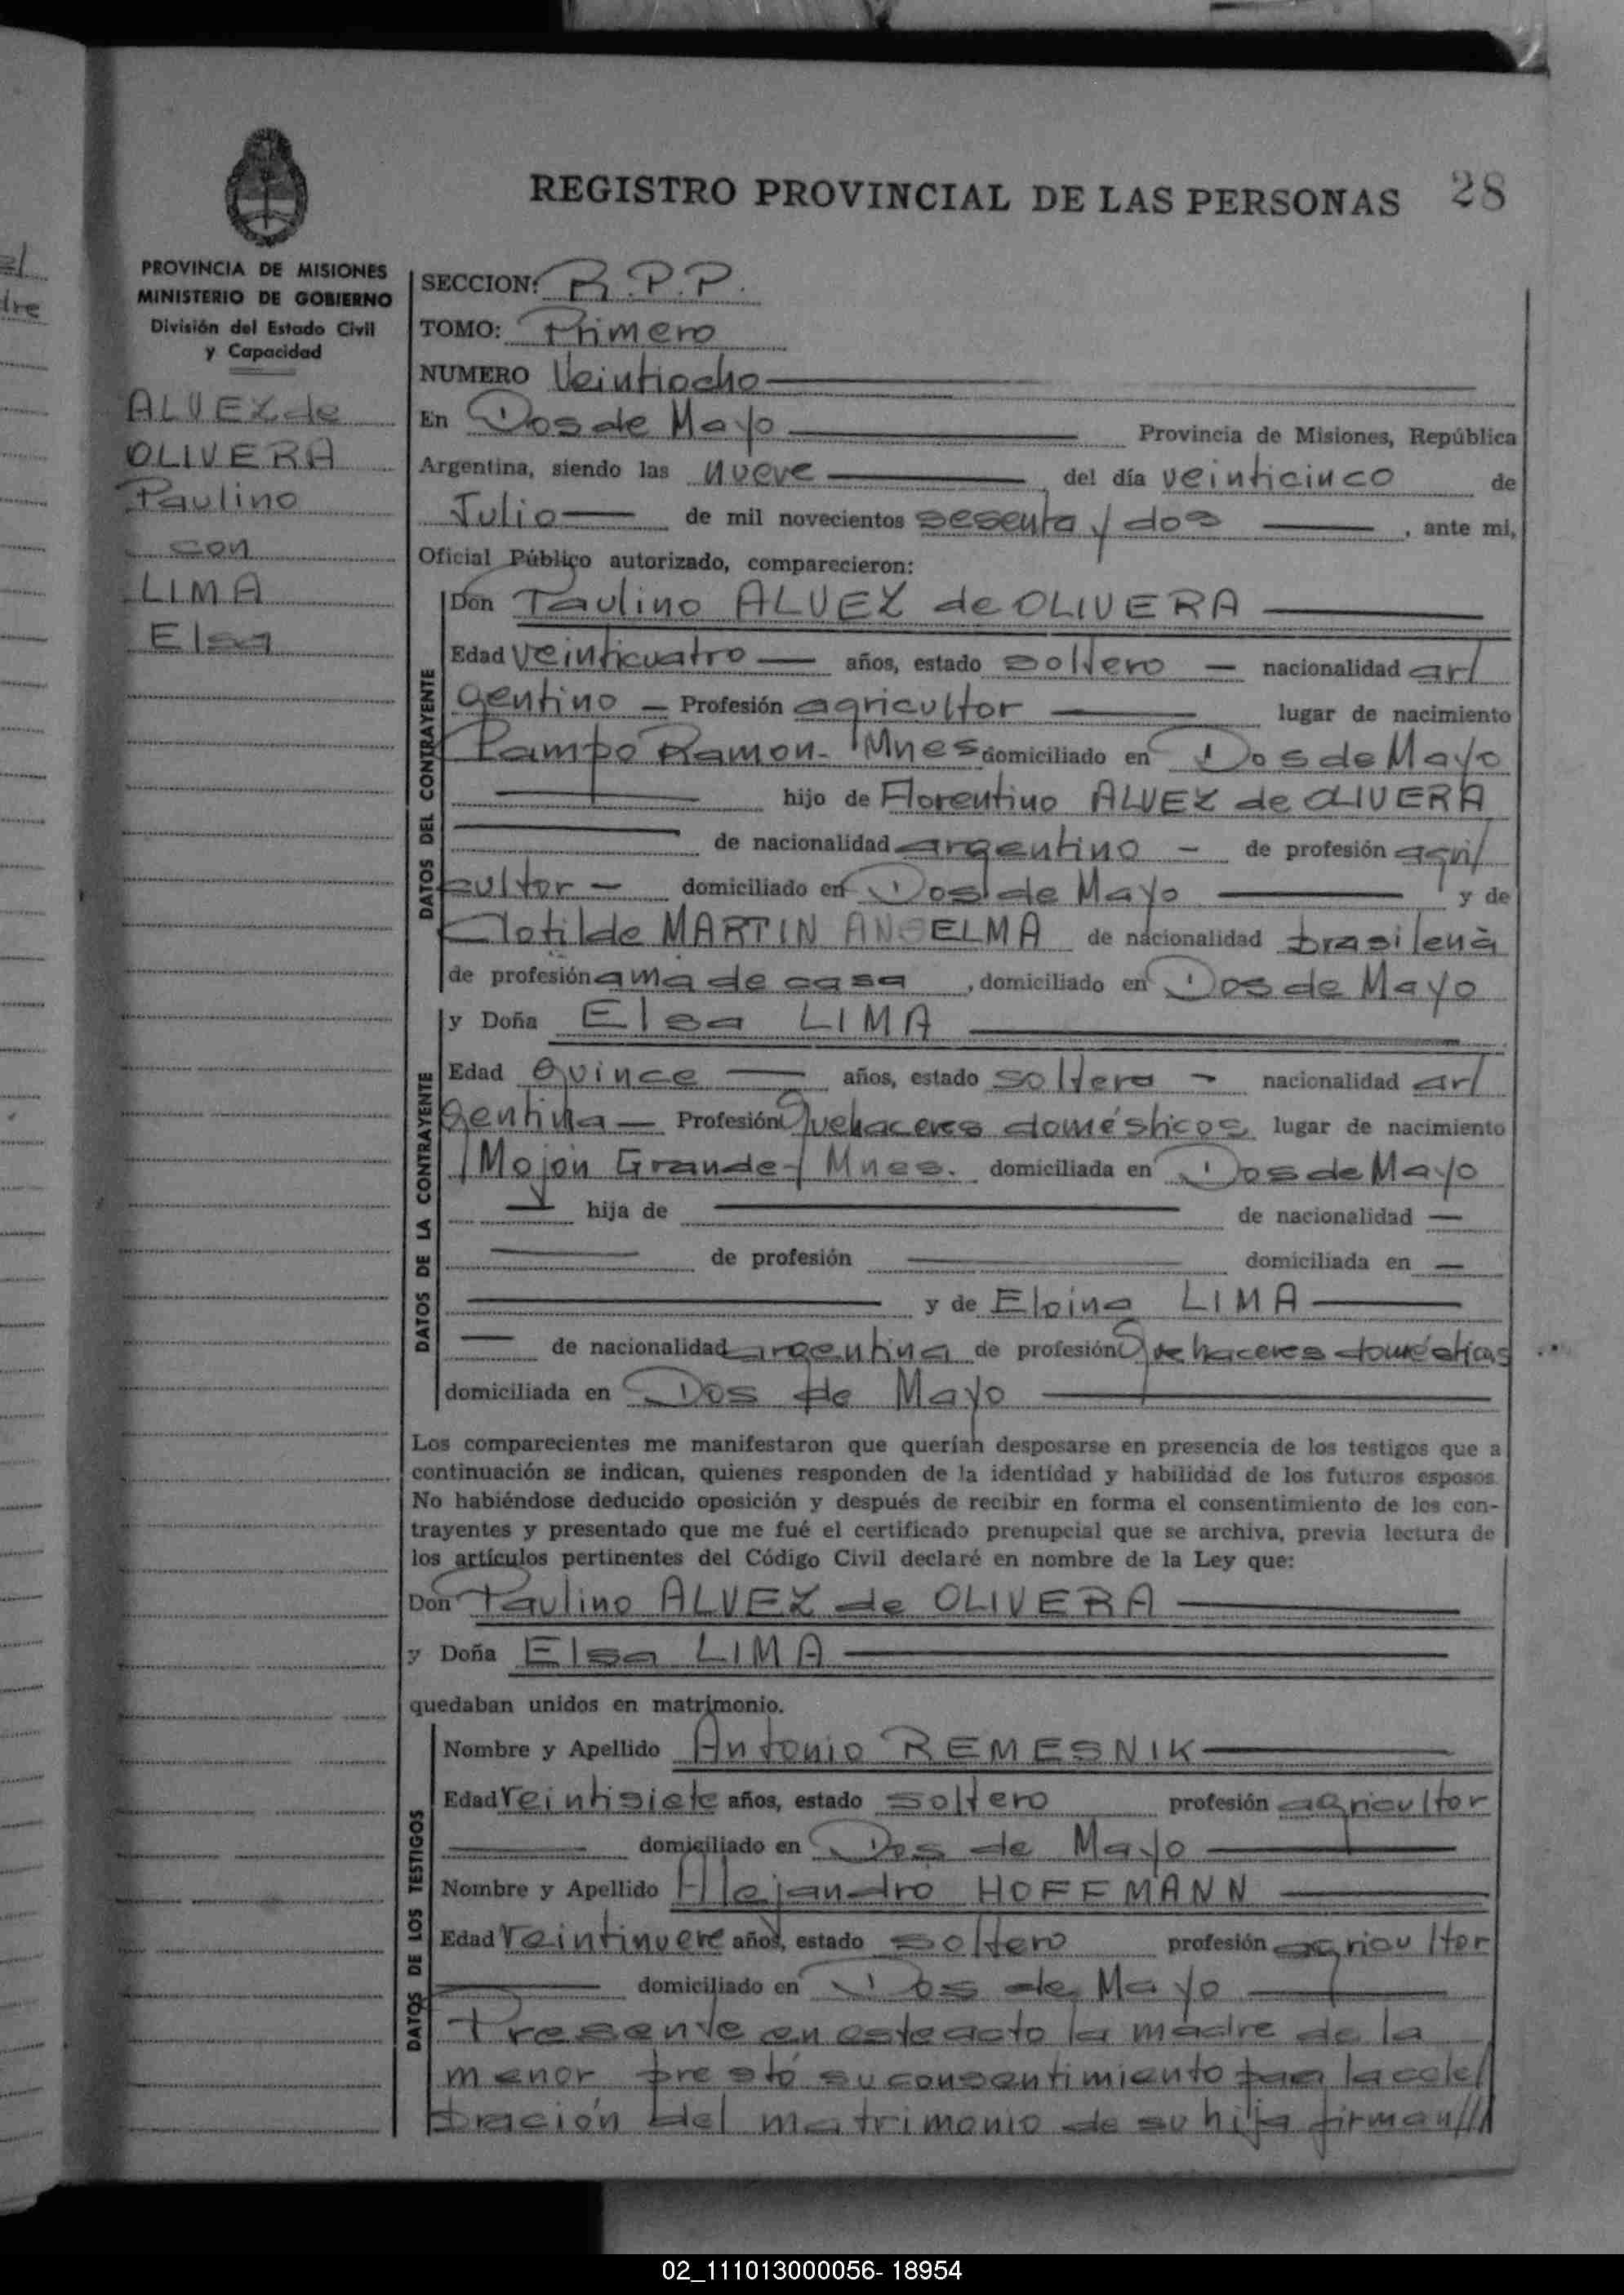 REGISTRO PROVINCIAL DE LAS PERSONAS 28
PROVINCIA DE MISIONES
MINISTERIO DE GOBIERNO
División del Estado Civil
y Capacidad
ALVEZ de
OLIVERA
Paulino
con
LIMA
Elsa
SECCION: R.P.P.
TOMO: Primero
NUMERO Veintiocho
En Dos de Mayo Provincia de Misiones, República
Argentina, siendo las nueve del día veinticinco de
Julio de mil novecientos sesenta y dos, ante mi,
Oficial Público autorizado, comparecieron:
DATOS DEL CONTRAYENTE
Don Paulino ALVEZ de OLIVERA
Edad veinticuatro años, estado soltero nacionalidad ar/
gentino Profesión agricultor lugar de nacimiento
Pampo Ramon - Mnes domiciliado en Dos de Mayo
hijo de Florentino ALVEZ de OLIVERA
de nacionalidad argentino de profesión agri/
cultor domiciliado en Dos de Mayo y de
Clotilde MARTIN ANSELMA de nacionalidad brasileña
de profesión ama de casa, domiciliado en Dos de Mayo
DATOS DE LA CONTRAYENTE
y Doña Elsa LIMA
Edad Quince años, estado soltera nacionalidad ar/
gentina Profesión Quehaceres domésticos lugar de nacimiento
/Mojón Grande/ Mnes. domiciliada en Dos de Mayo
hija de de nacionalidad
de profesión domiciliada en
y de Eloina LIMA
de nacionalidad argentina de profesión Quehaceres domésticos
domiciliada en Dos de Mayo
Los comparecientes me manifestaron que querían desposarse en presencia de los testigos que a
continuación se indican, quienes responden de la identidad y habilidad de los futuros esposos.
No habiéndose deducido oposición y después de recibir en forma el consentimiento de los con-
trayentes y presentado que me fué el certificado prenupcial que se archiva, previa lectura de
los artículos pertinentes del Código Civil declaré en nombre de la Ley que:
Don Paulino ALVEZ de OLIVERA
y Doña Elsa LIMA
quedaban unidos en matrimonio.
DATOS DE LOS TESTIGOS
Nombre y Apellido Antonio REMESNIK
Edad Veintisiete años, estado soltero profesión agricultor
domiciliado en Dos de Mayo
Nombre y Apellido Alejandro HOFFMANN
Edad Veintinueve años, estado soltero profesión agricultor
domiciliado en Dos de Mayo
Presente en este acto la madre de la
menor prestó su consentimiento para la cele/
bración del matrimonio de su hija firman///
02_111013000056- 18954